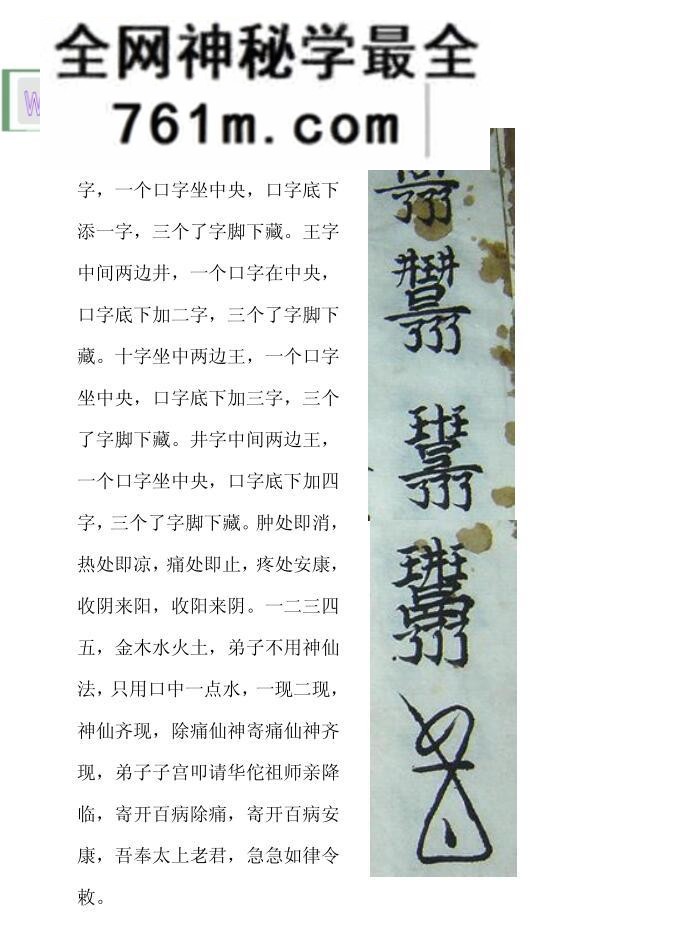 全网神秘学最全
761m.com
W
字，一个口字坐中央，口字底下
添一字，三个了字脚下藏。王字
中间两边井，一个口字在中央，
口字底下加二字，三个了字脚下
藏。十字坐中两边王，一个口字
坐中央，口字底下加三字，三个
了字脚下藏。井字中间两边王，
一个口字坐中央，口字底下加四
字，三个了字脚下藏。肿处即消，
热处即凉，痛处即止，疼处安康，
收阴来阳，收阳来阴。一二三四
五，金木水火土，弟子不用神仙
法，只用口中一点水，一现二现，
神仙齐现，除痛仙神寄痛仙神齐
现，弟子子宫叩请华佗祖师亲降
临，寄开百病除痛，寄开百病安
康，吾奉太上老君，急急如律令
敕。